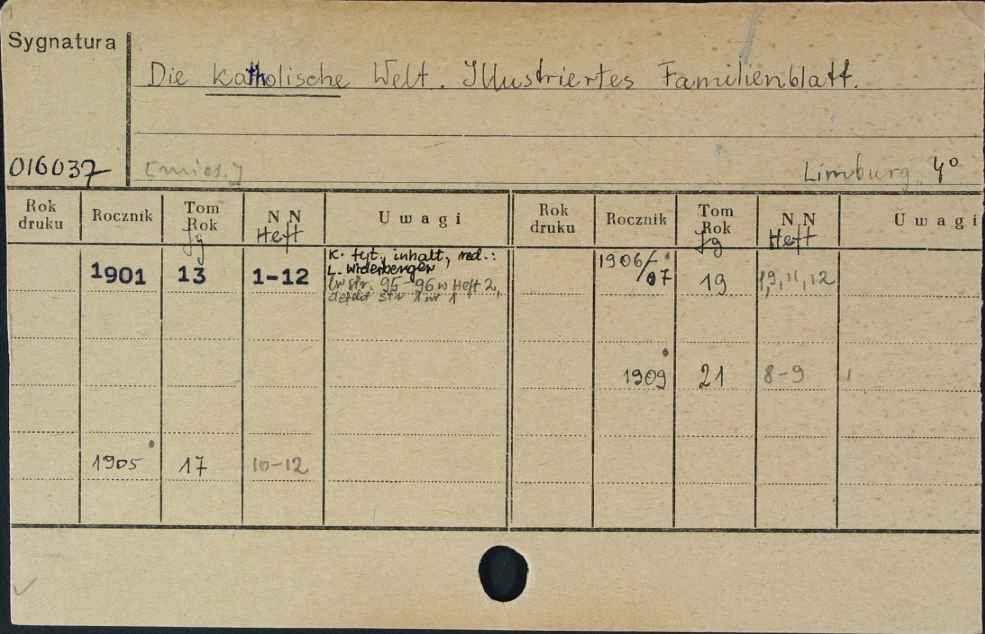 Sygnatura
Die katholische Welt. Illustriertes Familienblatt.
016037 [mies.] Limburg, 4°
Rok druku Rocznik Tom Rok Jg N N Heft Uwagi Rok druku Rocznik Tom Rok Jg N N Heft Uwagi
1901 13 1-12 K. tyt., inhalt, red.: 1906/07 19 9, 11, 12
L. Widerberger
str. 95-96 w Heft 2,
1909 21 8-9
1905 17 10-12